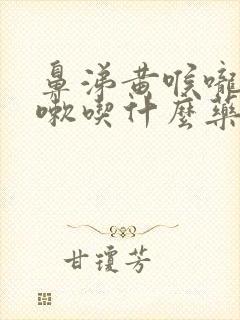 鼻涕黄喉嚨
嗽喫什麼藥
甘瓊芳